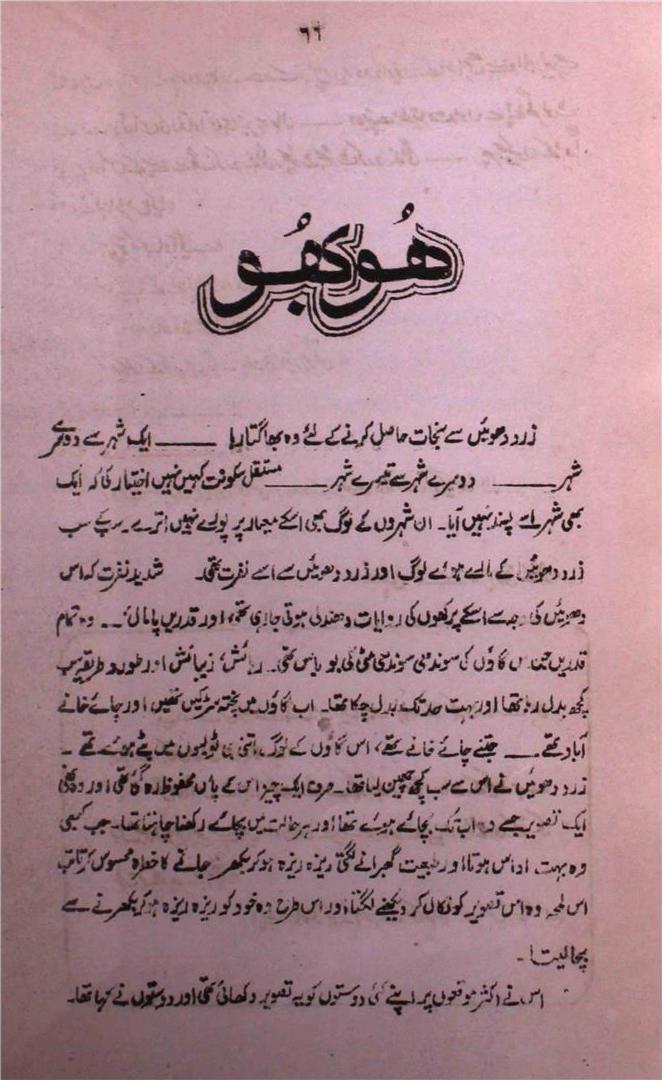 ٦٦
ھُو کھُو
زرد دھوئیں سے نجات حاصل کرنے کے لئے وہ بھاگتا رہا ــــــ ایک شہر سے دوسرے
شہر ــــــ دوسرے شہر سے تیسرے شہر ــــــ مستقل سکونت کہیں نہیں اختیار کی کہ ایک
بھی شہر اسے پسند نہیں آیا۔ ان شہروں کے لوگ بھی اسکے معیار پر پورے نہیں اترے۔ سب کے سب
زرد دھوئیں کے مارے ہوئے لوگ اور زرد دھوئیں سے اسے نفرت تھی۔ شدید نفرت کہ اس
دھوئیں کی وجہ سے اسکے پرکھوں کی روایات دھندلی ہوتی جا رہی تھی، اور قدریں پامال ۔۔ وہ تمام
قدریں جن میں گاؤں کی سوندھی سوندھی مٹی کی بو باس تھی۔ رہائش، زیبائش اور طور و طریق سب
کچھ بدل رہا تھا اور بہت حد تک بدل چکا تھا۔ اب گاؤں میں پختہ سڑکیں تھیں اور چائے خانے
آباد تھے ــــ جتنے چائے خانے تھے، اس گاؤں کے لوگ، اتنی ہی ٹولیوں میں بٹے ہوئے تھے ۔
زرد دھوئیں نے اس سے سب کچھ چھین لیا تھا۔ صرف ایک چیز اس کے پاس محفوظ رہ گئی تھی اور وہ تھی
ایک تصویر جسے وہ اب تک بچائے ہوئے تھا اور ہر حالت میں بچائے رکھنا چاہتا تھا۔ جب کبھی
وہ بہت اداس ہوتا اور طبیعت گھبرانے لگتی ریزہ ریزہ ہو کر بکھر جانے کا خطرہ محسوس کرتا تب
اس لمحہ وہ اس تصویر کو نکال کر دیکھنے لگتا اور اس طرح وہ خود کو ریزہ ریزہ ہو کر بکھرنے سے
بچا لیتا ۔
اس نے اکثر موقعوں پر اپنے کئی دوستوں کو یہ تصویر دکھائی تھی اور دوستوں نے کہا تھا۔